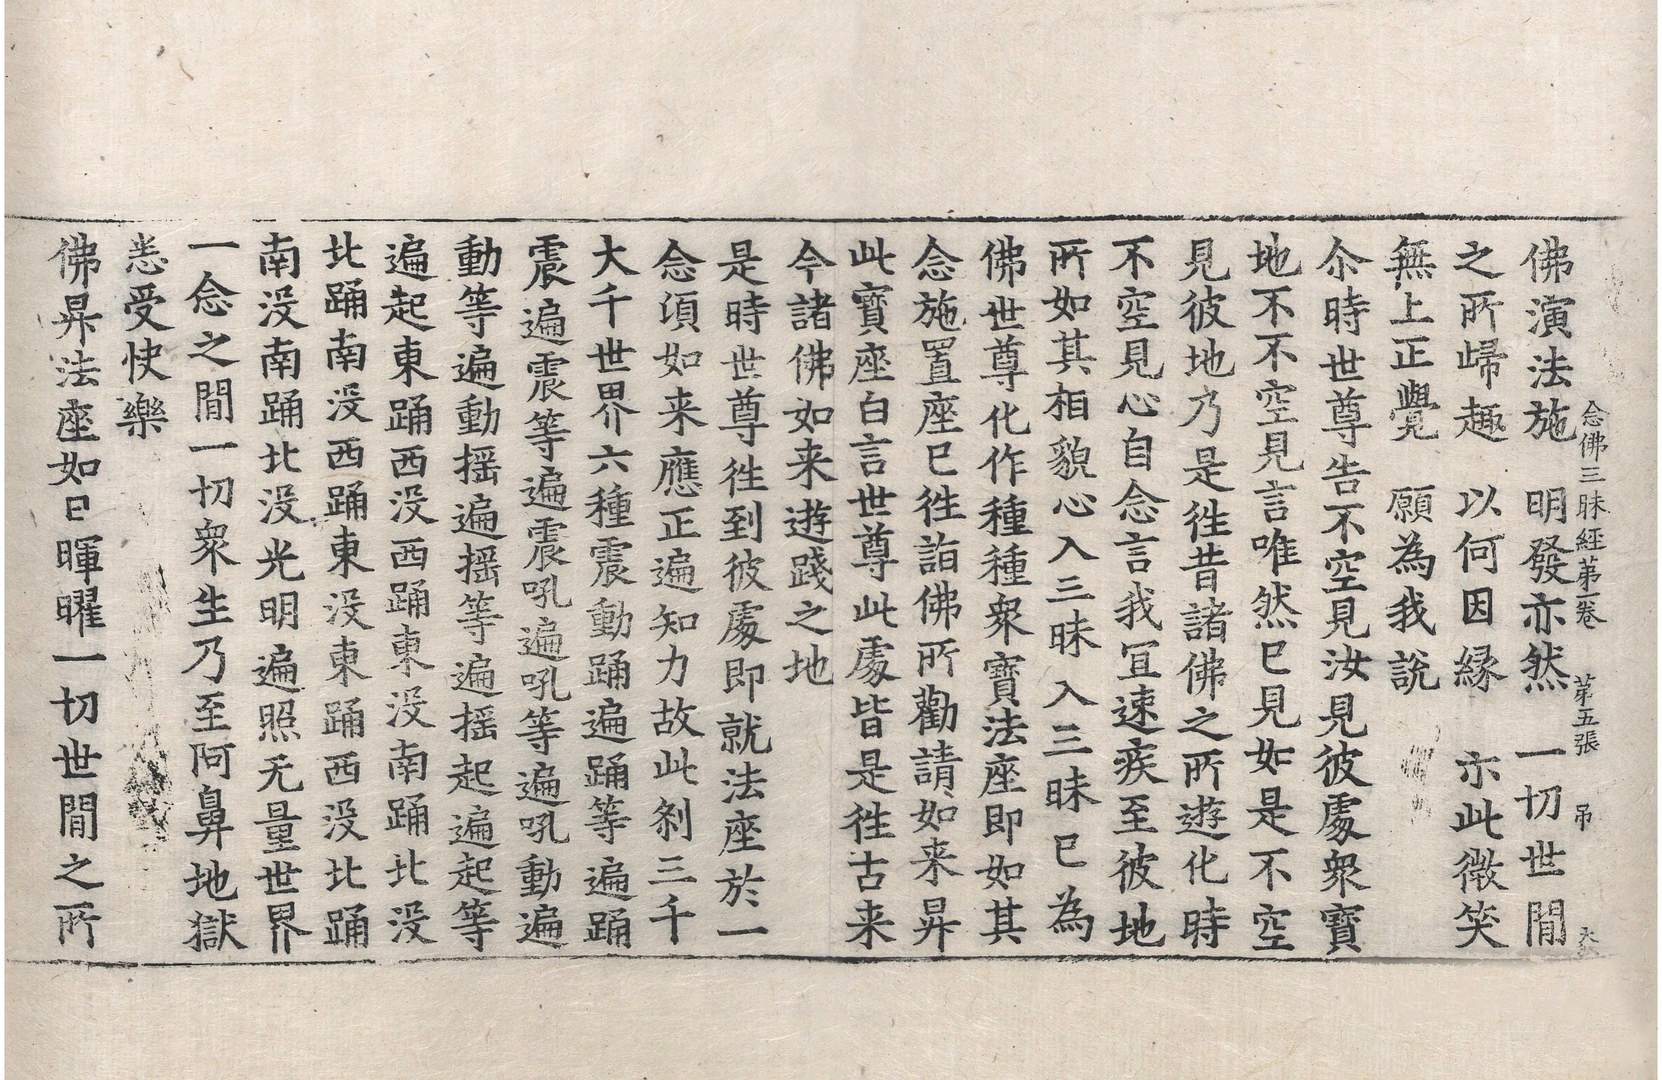 念佛三昧經第一卷　第五張　吊
佛演法施　明發亦然　一切世間
之所歸趣　以何因緣　示此微笑
無上正覺　願為我說
尒時世尊告不空見汝見彼處衆寶
地不不空見言唯然已見如是不空
見彼地乃是徃昔諸佛之所遊化時
不空見心自念言我冝速疾至彼地
所如其相貌心入三昧入三昧已為
佛世尊化作種種衆寶法座即如其
念施置座已徃詣佛所勸請如来昇
此寶座白言世尊此處皆是徃古来
今諸佛如来遊踐之地
是時世尊徃到彼處即就法座於一
念頃如来應正遍知力故此刹三千
大千世界六種震動踊遍踊等遍踊
震遍震等遍震吼遍吼等遍吼動遍
動等遍動揺遍揺等遍揺起遍起等
遍起東踊西没西踊東没南踊北没
北踊南没西踊東没東踊西没北踊
南没南踊北没光明遍照无量世界
一念之間一切衆生乃至阿鼻地獄
悉受快樂
佛昇法座如日暉曜一切世間之所